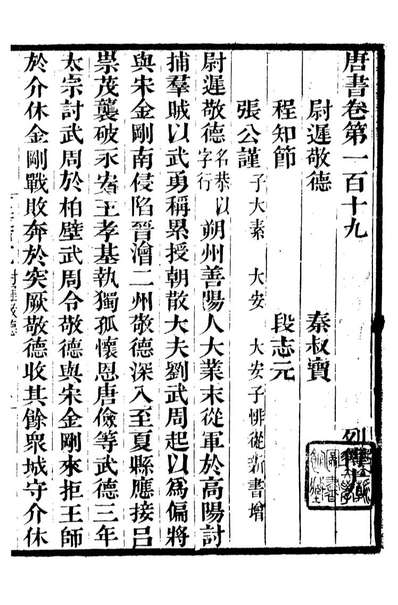 唐書卷第一百十九
尉遲敬德 秦叔寶
程知節 段志元
張公謹 子大素 大安 大安子悱從新書增
尉遲敬德名恭以字行朔州善陽人大業末從軍於高陽討
捕羣賊以武勇稱累授朝散大夫劉武周起以為偏將
與宋金剛南侵陷晉澮二州敬德深入至夏縣應接呂
崇茂襲破永安王孝基執獨孤懷恩唐儉等武德三年
太宗討武周於柏壁武周令敬德與宋金剛來拒王師
於介休金剛戰敗奔於突厥敬德收其餘衆城守介休